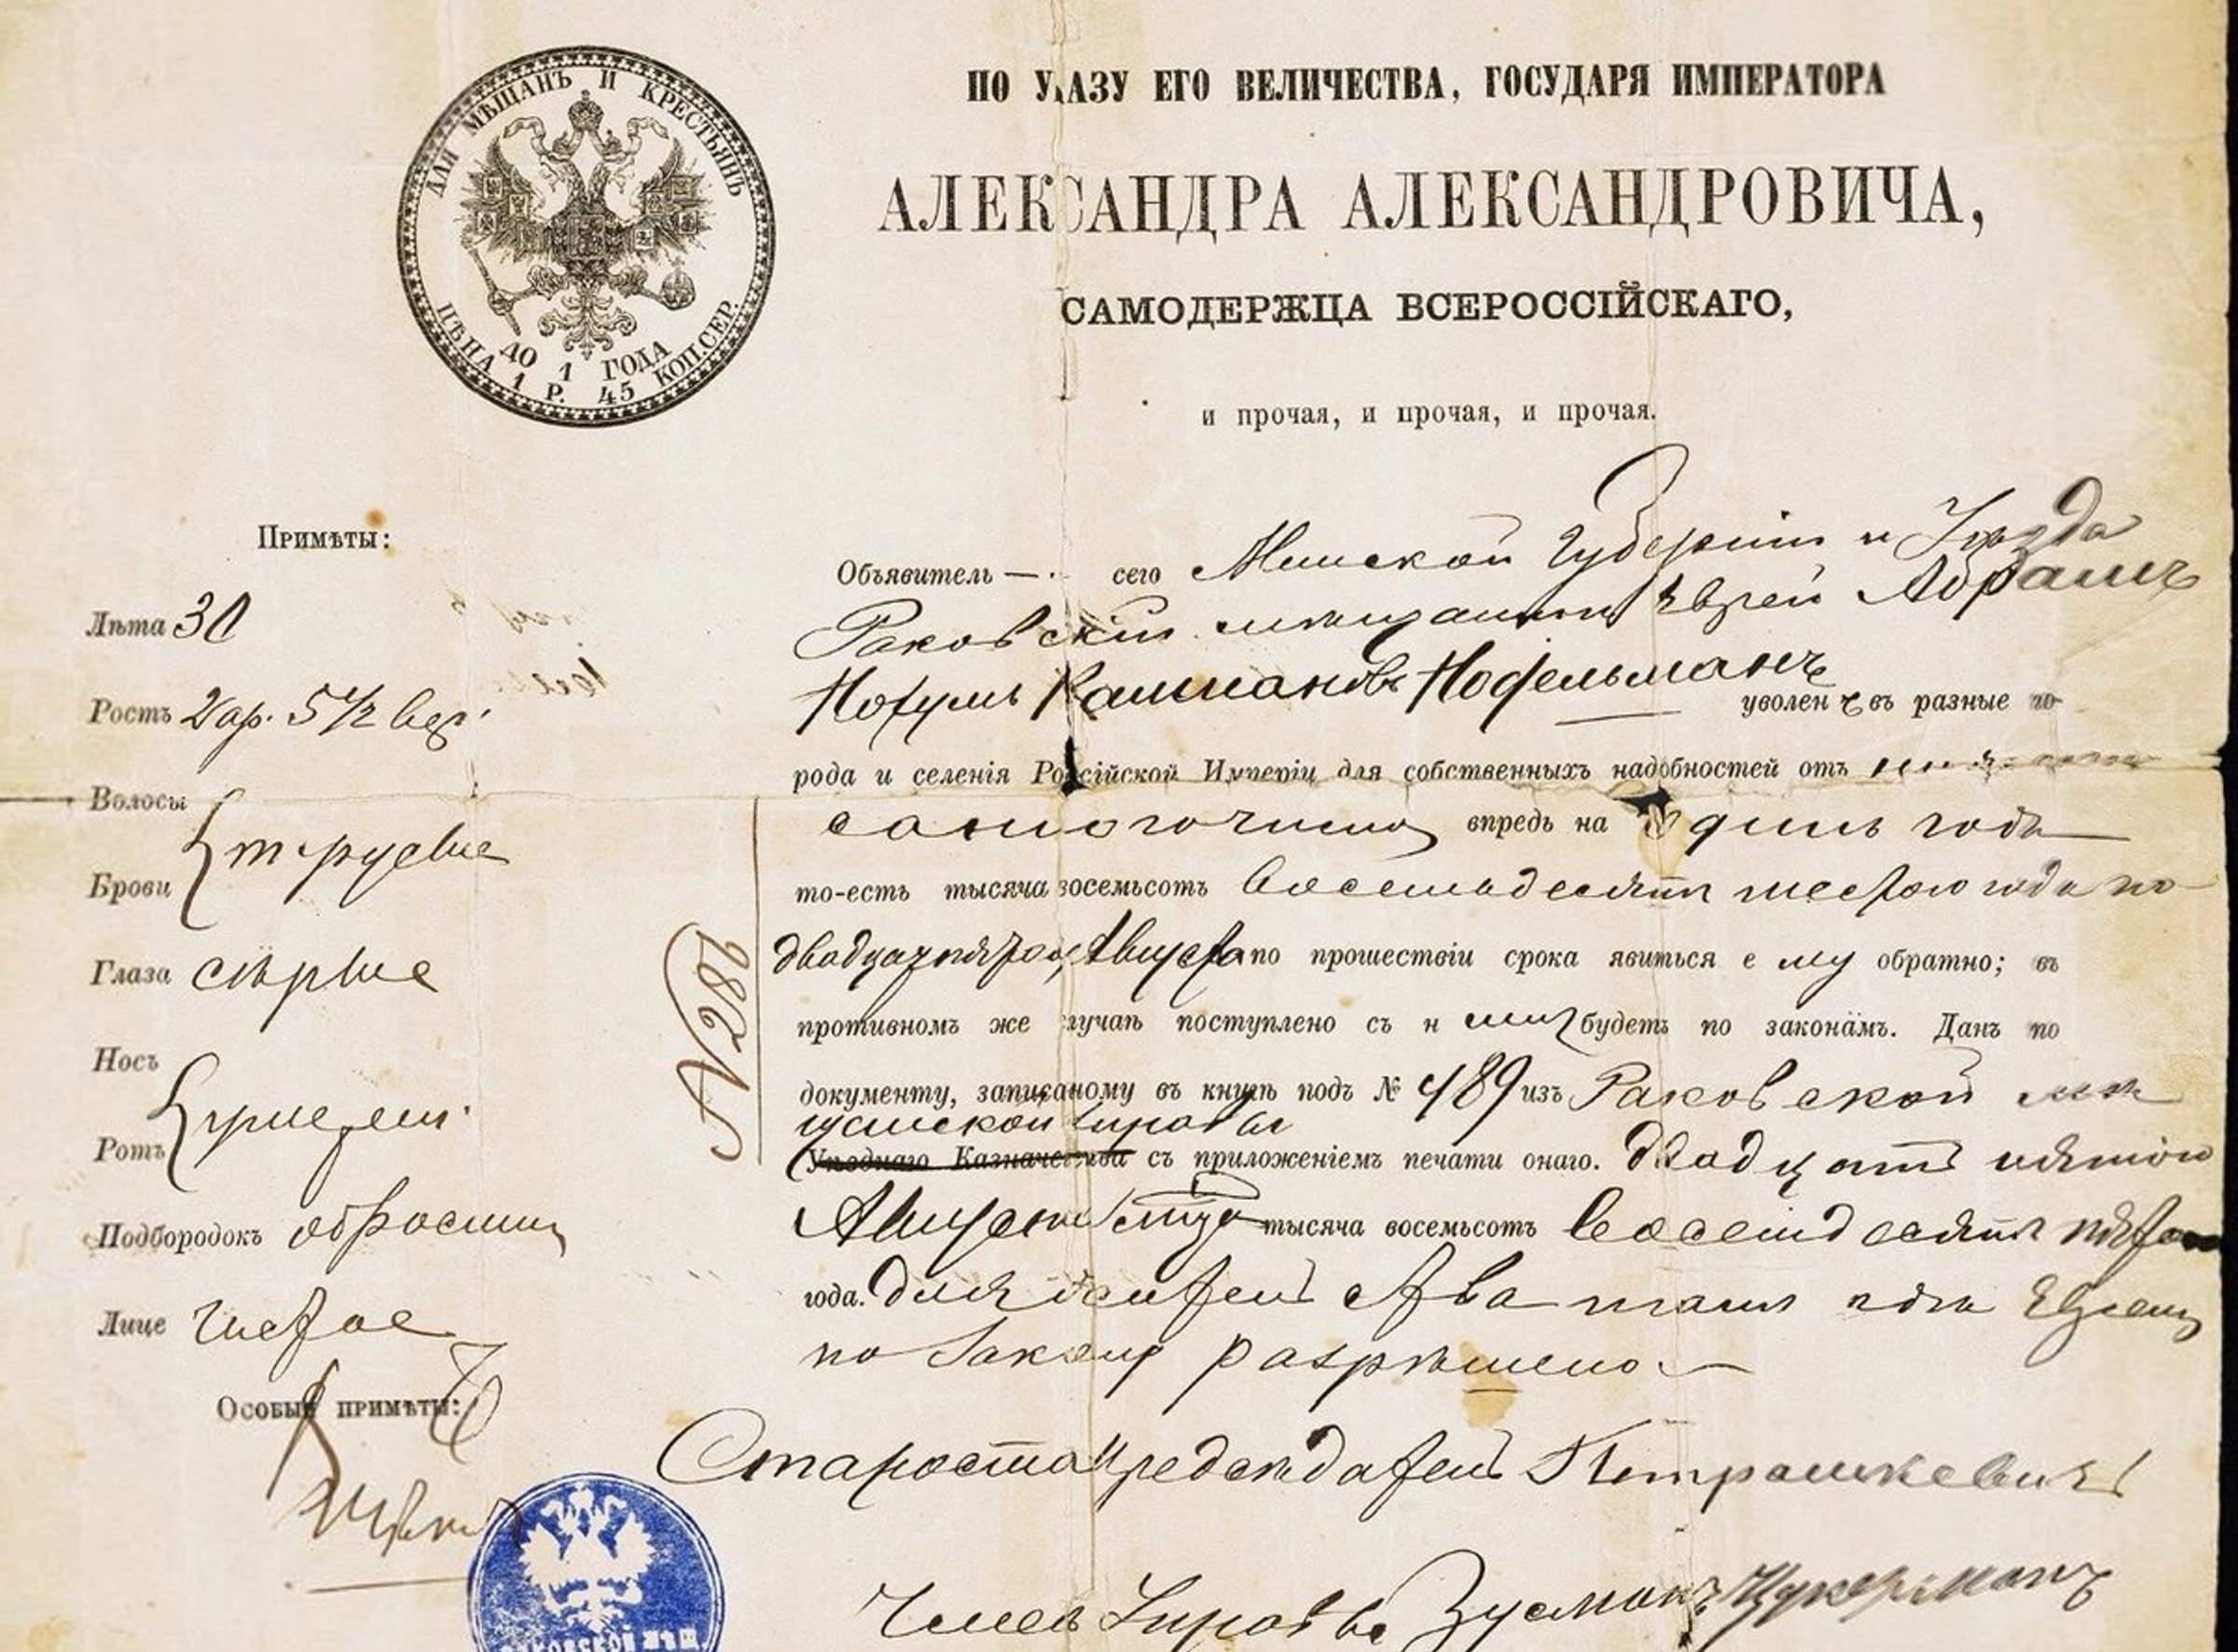 ДЛЯ МѢЩАНЪ И КРЕСТЬЯНЪ
ДО 1 ГОДА
ЦѢНА 1 Р. 45 КОП. СЕР.
ПО УКАЗУ ЕГО ВЕЛИЧЕСТВА, ГОСУДАРЯ ИМПЕРАТОРА
АЛЕКСАНДРА АЛЕКСАНДРОВИЧА,
САМОДЕРЖЦА ВСЕРОССІЙСКАГО,
и прочая, и прочая, и прочая.
Примѣты:
Лѣта 30
Ростъ 2 ар. 5 1/2 вер.
Волосы
Брови
Глаза сѣрые
Носъ
Ротъ
Подбородокъ
Лице чистое
Особыя примѣты:
Объявитель — сего Минской Губерніи и Уѣзда
Раковскій мѣщанинъ Еврей Абрамъ
Нохумъ Калмановъ Нофельманъ уволенъ въ разные го-
рода и селенія Россійской Имперіи для собственныхъ надобностей отъ
впредь на Одинъ годъ
то-есть тысяча восемьсотъ восемьдесятъ шестого года по
двадцать пятое Августа по прошествіи срока явиться ему обратно; въ
противномъ же случаѣ поступлено съ нимъ будетъ по законамъ. Данъ по
документу, записаному въ книгѣ подъ № 489 изъ Раковской мѣ
щанской Управы
Уѣзднаго Казначейства съ приложеніемъ печати онаго. Двадцать пятого
Августа тысяча восемьсотъ восемьдесятъ пятого
года. для жительства тамъ гдѣ Евреямъ
по Закону разрѣшено. —
№ 286
Староста Предсѣдатель Петрашкевичъ
Членъ Управы Зусманъ Цукерманъ